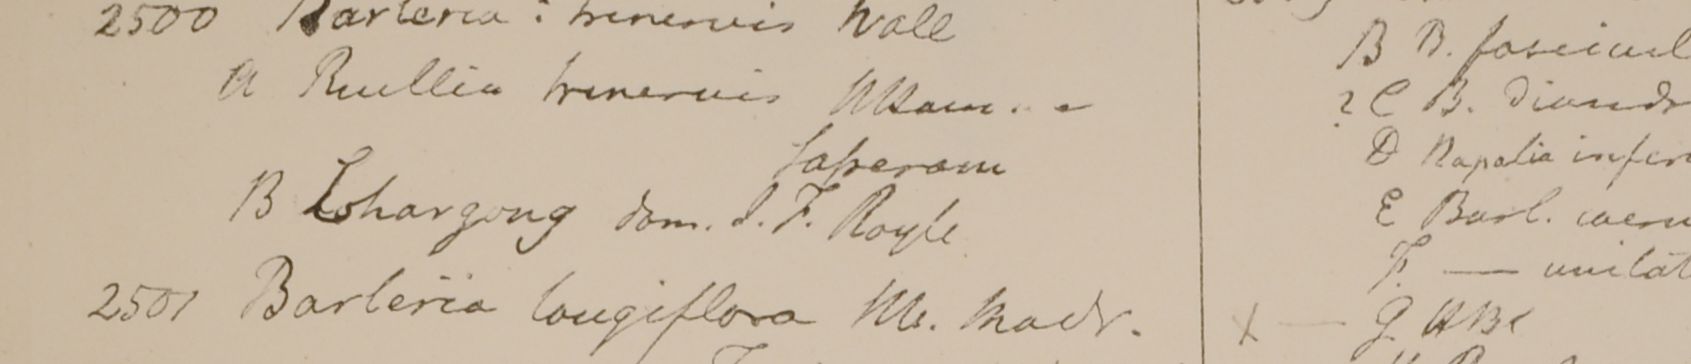 2500 Barleria : trinervis Wall
A Ruellia trinervis
B Lohargong dom. J. F. Royle
2501 Barleria longiflora Hb. Madr.
B B. fascicul
? C B. diandr
D infer
E Barl. caeru
F. —
X — G HBC